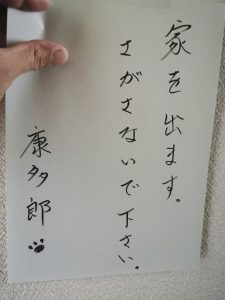 家を出ます。
さがさないで下さい。
康多郎